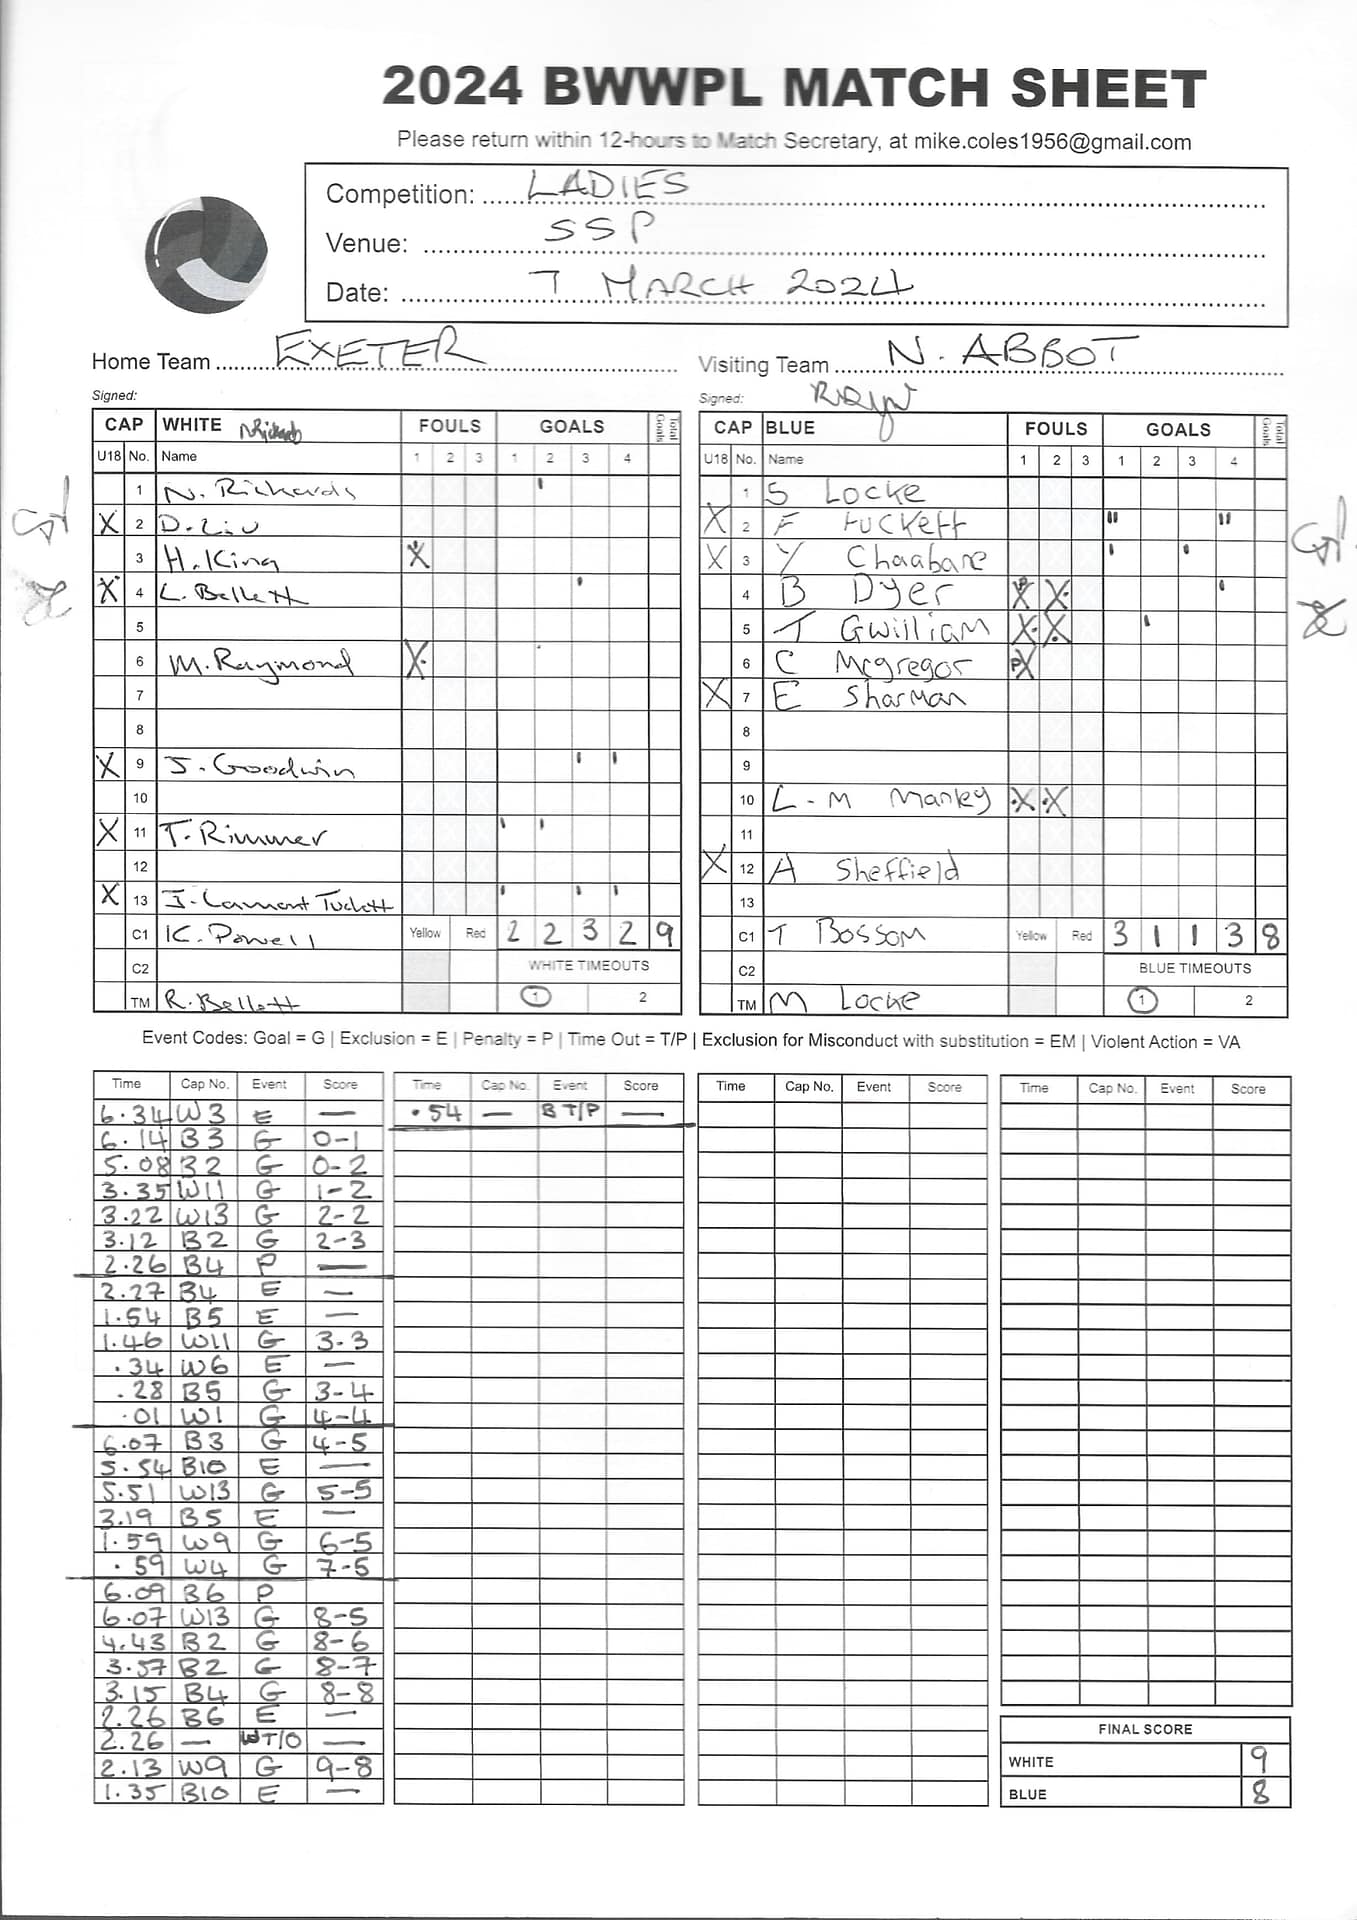 2024 BWWPL MATCH SHEET
Please return within 12-hours to Match Secretary, at mike.coles1956@gmail.com
Competition: LADIES
Venue: SSP
Date: 7 MARCH 2024
Home Team EXETER
Visiting Team N. ABBOT
Signed:
Signed:
CAP WHITE FOULS GOALS Total Goals
U18 No. Name 1 2 3 1 2 3 4
1 N. Richards '
X 2 D. Liu
3 H. King X
X 4 L. Bellett '
5
6 M. Raymond X
7
8
X 9 J. Goodwin ' '
10
X 11 T. Rimmer ' '
12
X 13 J. Lamont Tuckett ' ' '
C1 K. Powell Yellow Red 2 2 3 2 9
C2 WHITE TIMEOUTS
TM R. Bellett 1 2
CAP BLUE FOULS GOALS Total Goals
U18 No. Name 1 2 3 1 2 3 4
1 S Locke
X 2 F Tuckett " "
X 3 Y Chaabane ' '
4 B Dyer X X '
5 T Gwilliam X X '
6 C Mcgregor PX
X 7 E Sharman
8
9
10 L-M Manley X X
11
X 12 A Sheffield
13
C1 T Bossom Yellow Red 3 1 1 3 8
C2 BLUE TIMEOUTS
TM M Locke 1 2
Event Codes: Goal = G | Exclusion = E | Penalty = P | Time Out = T/P | Exclusion for Misconduct with substitution = EM | Violent Action = VA
Time Cap No. Event Score
6.34 W3 E —
6.14 B3 G 0-1
5.08 B2 G 0-2
3.35 W11 G 1-2
3.22 W13 G 2-2
3.12 B2 G 2-3
2.26 B4 P —
2.27 B4 E —
1.54 B5 E —
1.46 W11 G 3-3
.34 W6 E —
.28 B5 G 3-4
.01 W1 G 4-4
6.07 B3 G 4-5
5.54 B10 E —
5.51 W13 G 5-5
3.19 B5 E —
1.59 W9 G 6-5
.59 W4 G 7-5
6.09 B6 P
6.07 W13 G 8-5
4.43 B2 G 8-6
3.57 B2 G 8-7
3.15 B4 G 8-8
2.26 B6 E —
2.26 — WT/O —
2.13 W9 G 9-8
1.35 B10 E —
Time Cap No. Event Score
.54 — B T/P —
Time Cap No. Event Score
Time Cap No. Event Score
FINAL SCORE
WHITE 9
BLUE 8